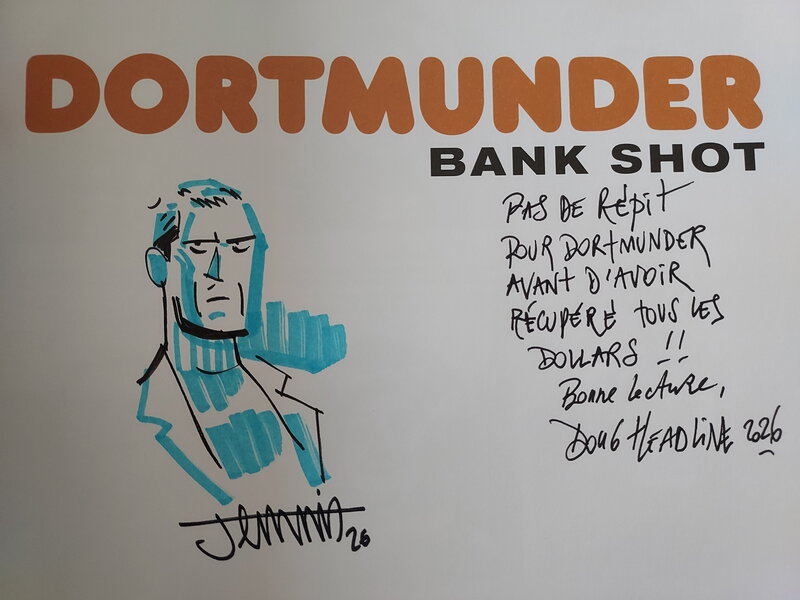 DORTMUNDER
BANK SHOT
PAS DE RÉPIT
POUR DORTMUNDER
AVANT D'AVOIR
RÉCUPÉRÉ TOUS LES
DOLLARS !!
Bonne lecture,
DOUG HEADLINE 2026
Jemmin 26